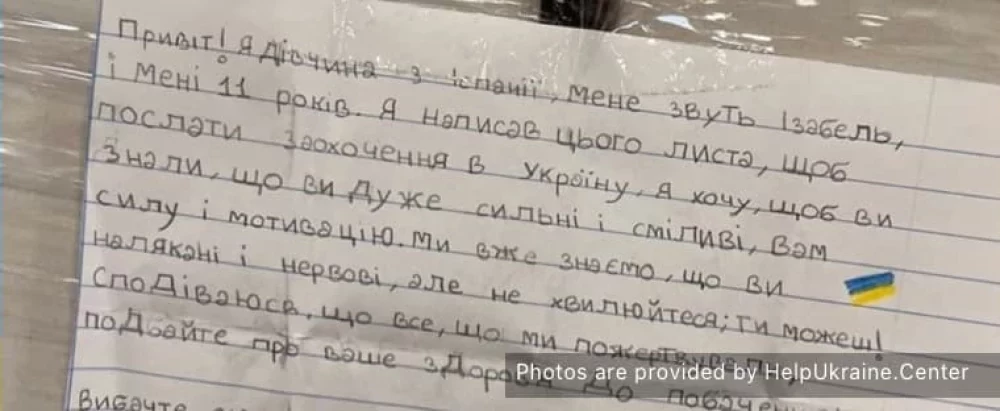 Привіт! Я дівчина з Іспанії, мене звуть Ізабель,
і мені 11 років. Я написав цього листа, щоб
послати заохочення в Україну, я хочу, щоб ви
знали, що ви дуже сильні і сміливі, вам
силу і мотивацію. Ми вже знаємо, що ви
налякані і нервові, але не хвилюйтеся; ти можеш!
Сподіваюсв, що все, що ми
подбайте про ваше
Photos are provided by HelpUkraine.Center
Вибачте